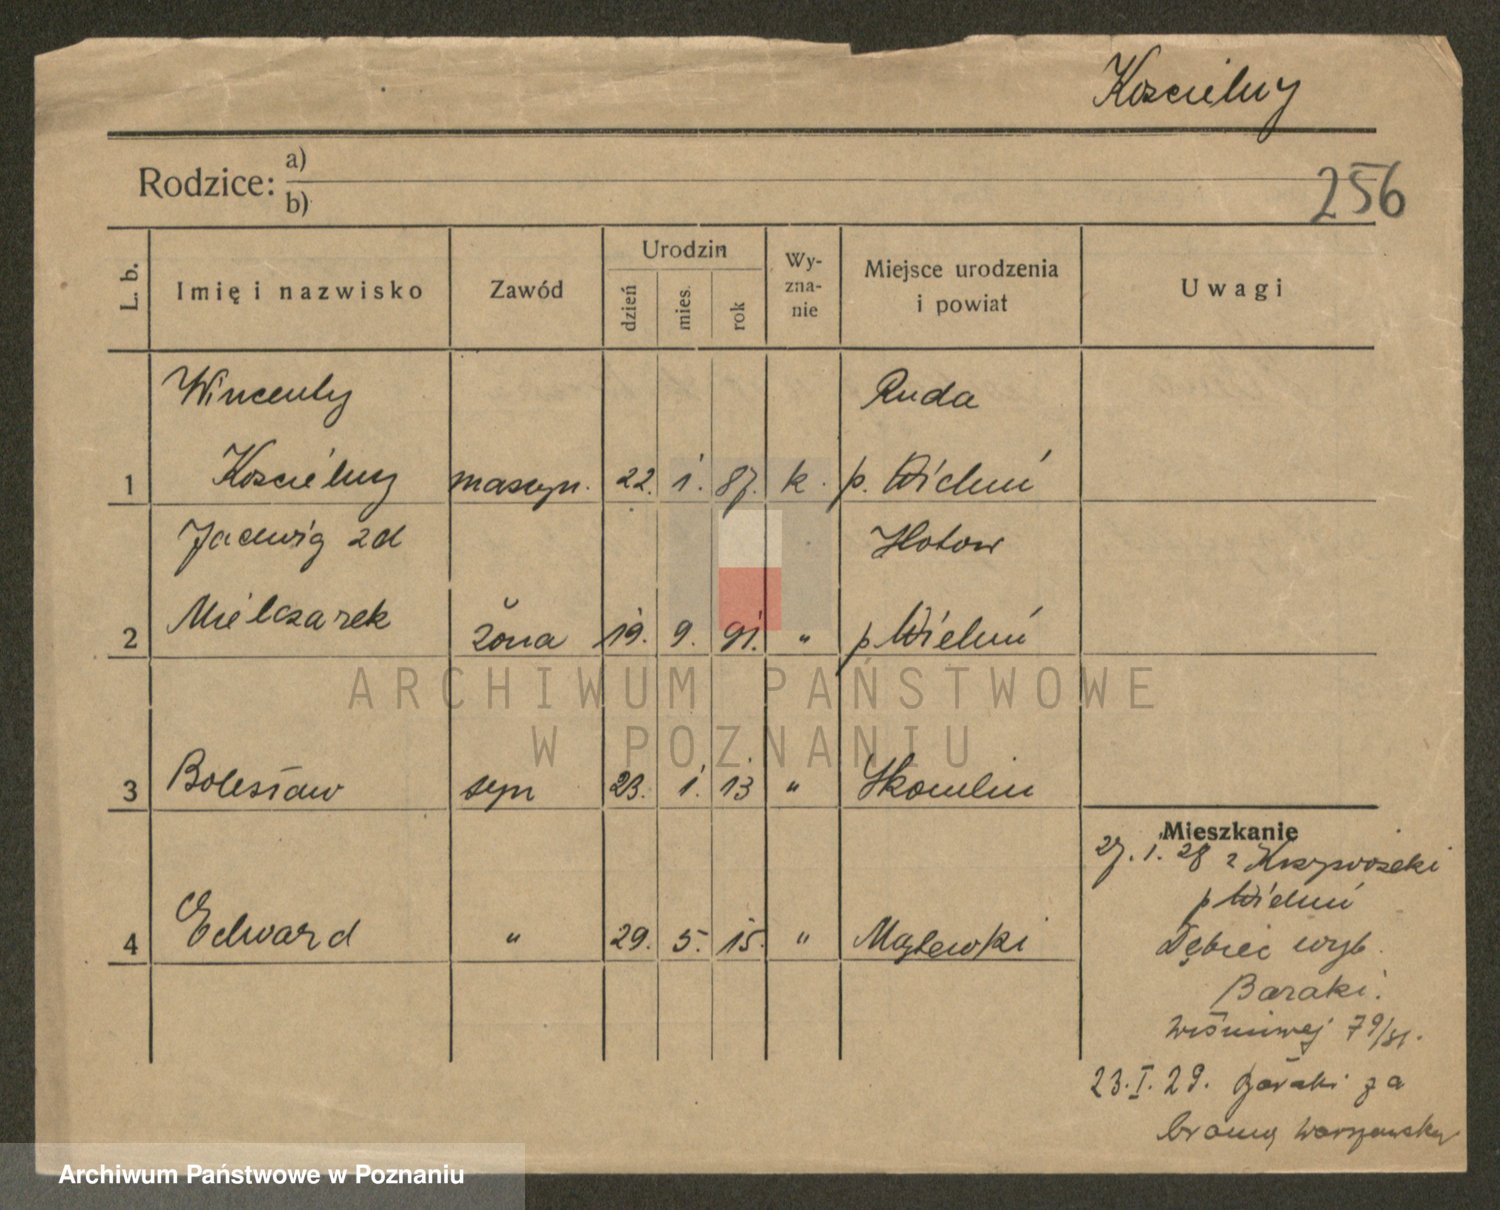 Kościelny
Rodzice: a)
b)
256
L. b.
Imię i nazwisko
Zawód
Urodzin
dzień
mies.
rok
Wy-
zna-
nie
Miejsce urodzenia
i powiat
Uwagi
Wincenty
Ruda
1 Kościelny maszyn. 22. 1. 87. k. p. Wieluń
Jadwig zd
Mielczarek
2 żona 19. 9. 91. " p Wieluń
3 Bolesław syn 23. 1. 13 " Skomlin
4 Edward " 29. 5. 15. "
Mieszkanie
27. 1. 28 z
p Wieluń
Dębiec wyb.
Baraki.
23. I. 29. Baraki za
bramą warszawską
ARCHIWUM PAŃSTWOWE
W POZNANIU
Archiwum Państwowe w Poznaniu